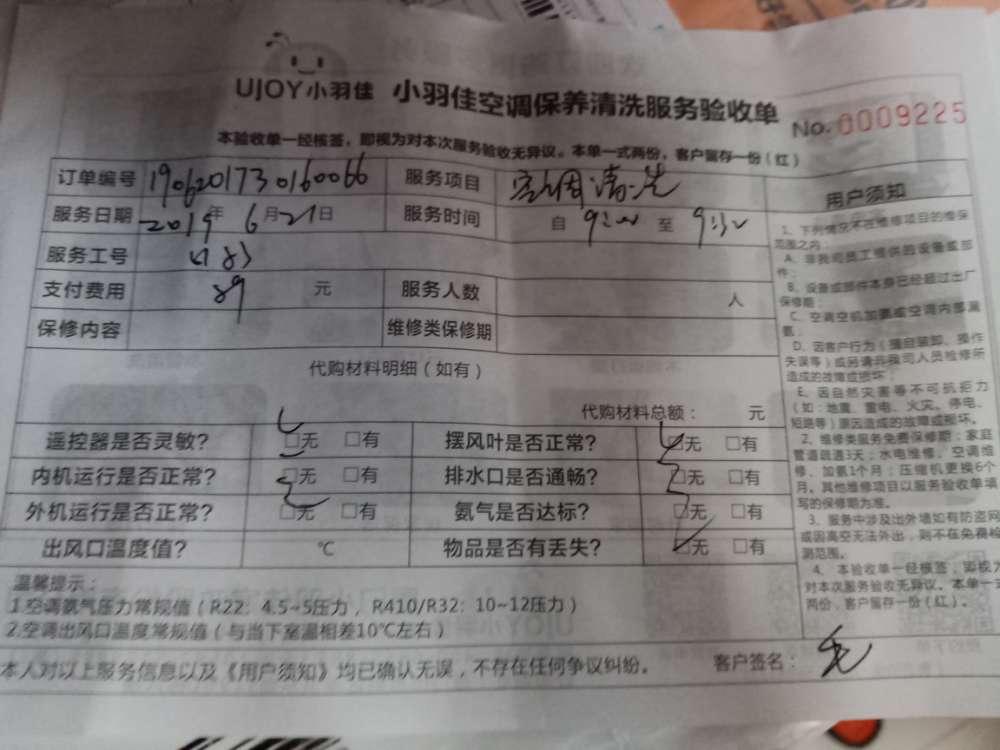 UJOY小羽佳 小羽佳空调保养清洗服务验收单
No. 0009225
本验收单一经核签，即视为对本次服务验收无异议。本单一式两份，客户留存一份（红）
订单编号 1906201730160066 服务项目 空调清洗
服务日期 2019年6月21日 服务时间 自 9:00 至 9:30
服务工号
支付费用 89 元 服务人数 人
保修内容 维修类保修期
代购材料明细（如有）
代购材料总额： 元
遥控器是否灵敏? □无 □有 摆风叶是否正常? □无 □有
内机运行是否正常? □无 □有 排水口是否通畅? □无 □有
外机运行是否正常? □无 □有 氨气是否达标? □无 □有
出风口温度值? ℃ 物品是否有丢失? □无 □有
温馨提示：
1.空调氨气压力常规值（R22：4.5~5压力，R410/R32：10~12压力）
2.空调出风口温度常规值（与当下室温相差10℃左右）
本人对以上服务信息以及《用户须知》均已确认无误，不存在任何争议纠纷。 客户签名： 毛
用户须知
1、下列情况不在维修项目的维保
范围之内：
A、非我司员工提供的设备或部
件；
B、设备或部件本身已经超过出厂
保修期；
C、空调空机加氨或空调内部漏
氨；
D、因客户行为（擅自装卸、操作
失误等）或另请非我司人员检修所
造成的故障或损坏；
E、因自然灾害等不可抗拒力
（如:地震、雷电、火灾、停电、
短路等）原因造成的故障或损坏。
2、维修类服务免费保修期：家庭
管道疏通3天；水电维修、空调维
修、加氨1个月；压缩机更换6个
月。其他维修项目以服务验收单填
写的保修期为准。
3、服务中涉及出外墙如有防盗网
或因高空无法外出，则不在免费检
测范围。
4、本验收单一经核签，即视为
对本次服务验收无异议。本单一式
两份，客户留存一份（红）。